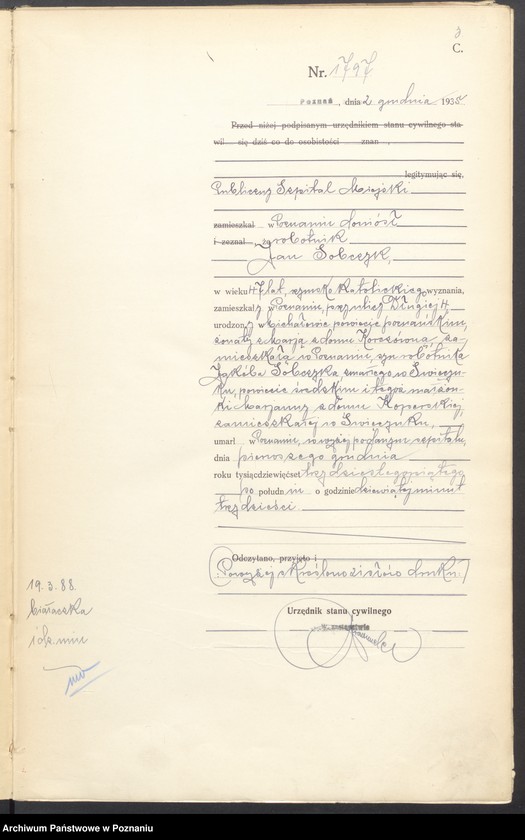 3
C.
Nr. 1797
Poznań, dnia 2 grudnia 1935
Przed niżej podpisanym urzędnikiem stanu cywilnego sta-
wił się dziś co do osobistości znan ,
legitymując się,
Publiczny Szpital Miejski
zamieszkał w Poznaniu doniósł
i zeznał , że robotnik
Jan Sobczyk,
w wieku 47 lat, rzymsko katolickiego wyznania,
zamieszkały w Poznaniu, przy ulicy Długiej 4
urodzony w powiecie poznańskim,
żonaty z Marją z domu za-
mieszkałą w Poznaniu, syn robotnika
Jakóba Sobczyka zmarłego w
powiecie średzkim i tegoż małżon-
ki Marjanny z domu Koperskiej,
zamieszkałej w
umarł w Poznaniu, w wyżej podanym szpitalu,
dnia pierwszego grudnia
roku tysiącdziewięćset trzydziestego piątego
po południu o godzinie dziewiątej minut
trzydzieści.
Odczytano, przyjęto i
(Powyżej skreślono zisłów druku.)
Urzędnik stanu cywilnego
W zastępstwie
19. 3. 88.
Białaczka
Archiwum Państwowe w Poznaniu